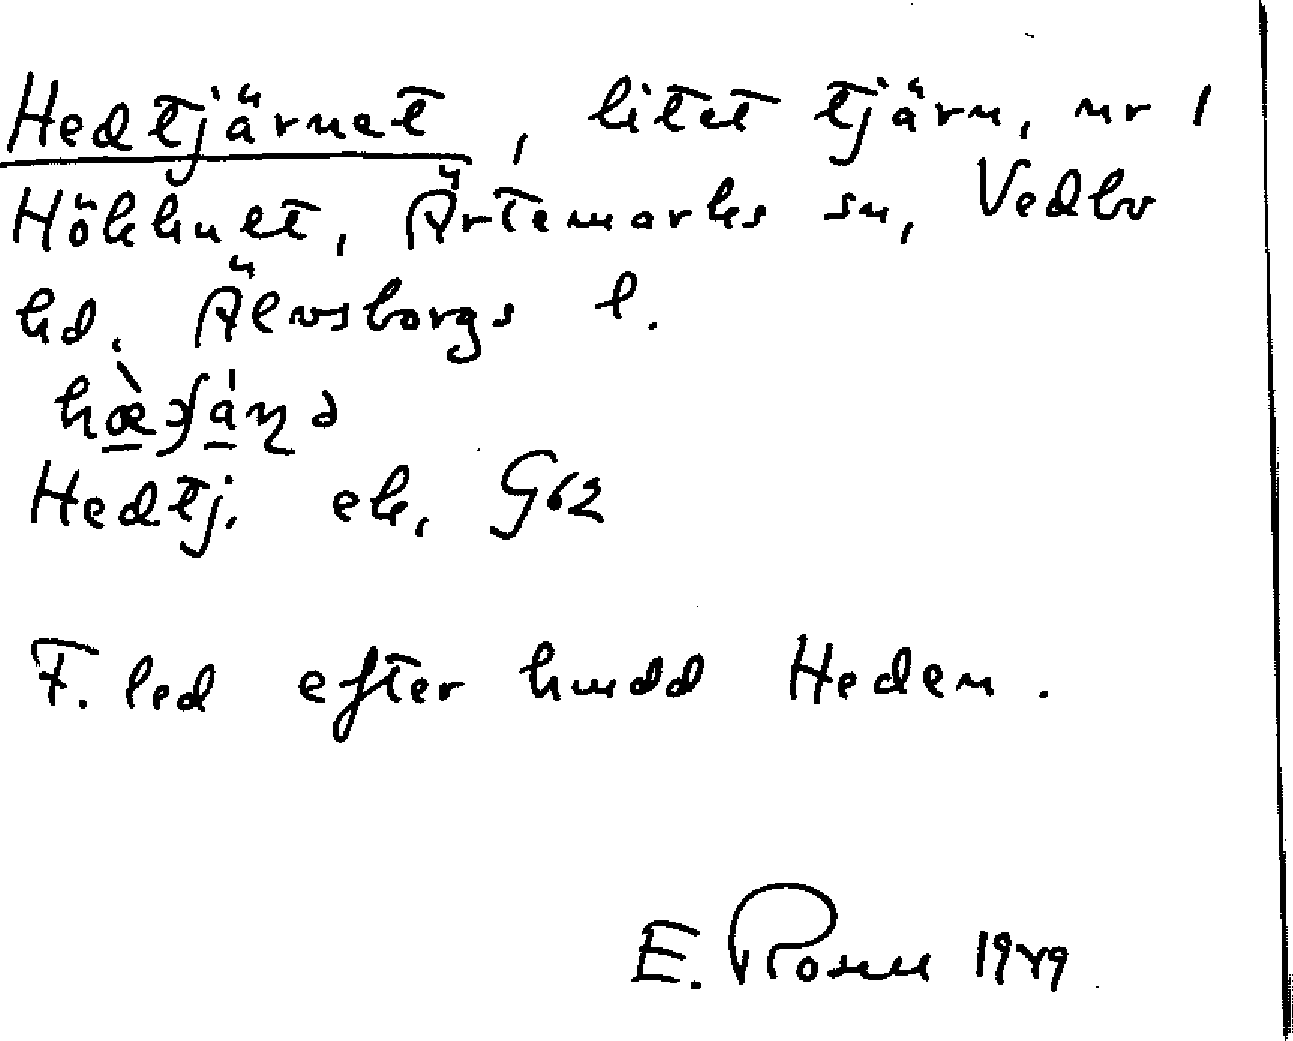 Hedtjärnet, litet tjärn, nr 1
Hökhult, Ärtemarks sn, Vedbo
hd. Älvsborgs l.
Hedtj. ek. G62
F. led efter hmdd Heden.
E. Rosell 1929